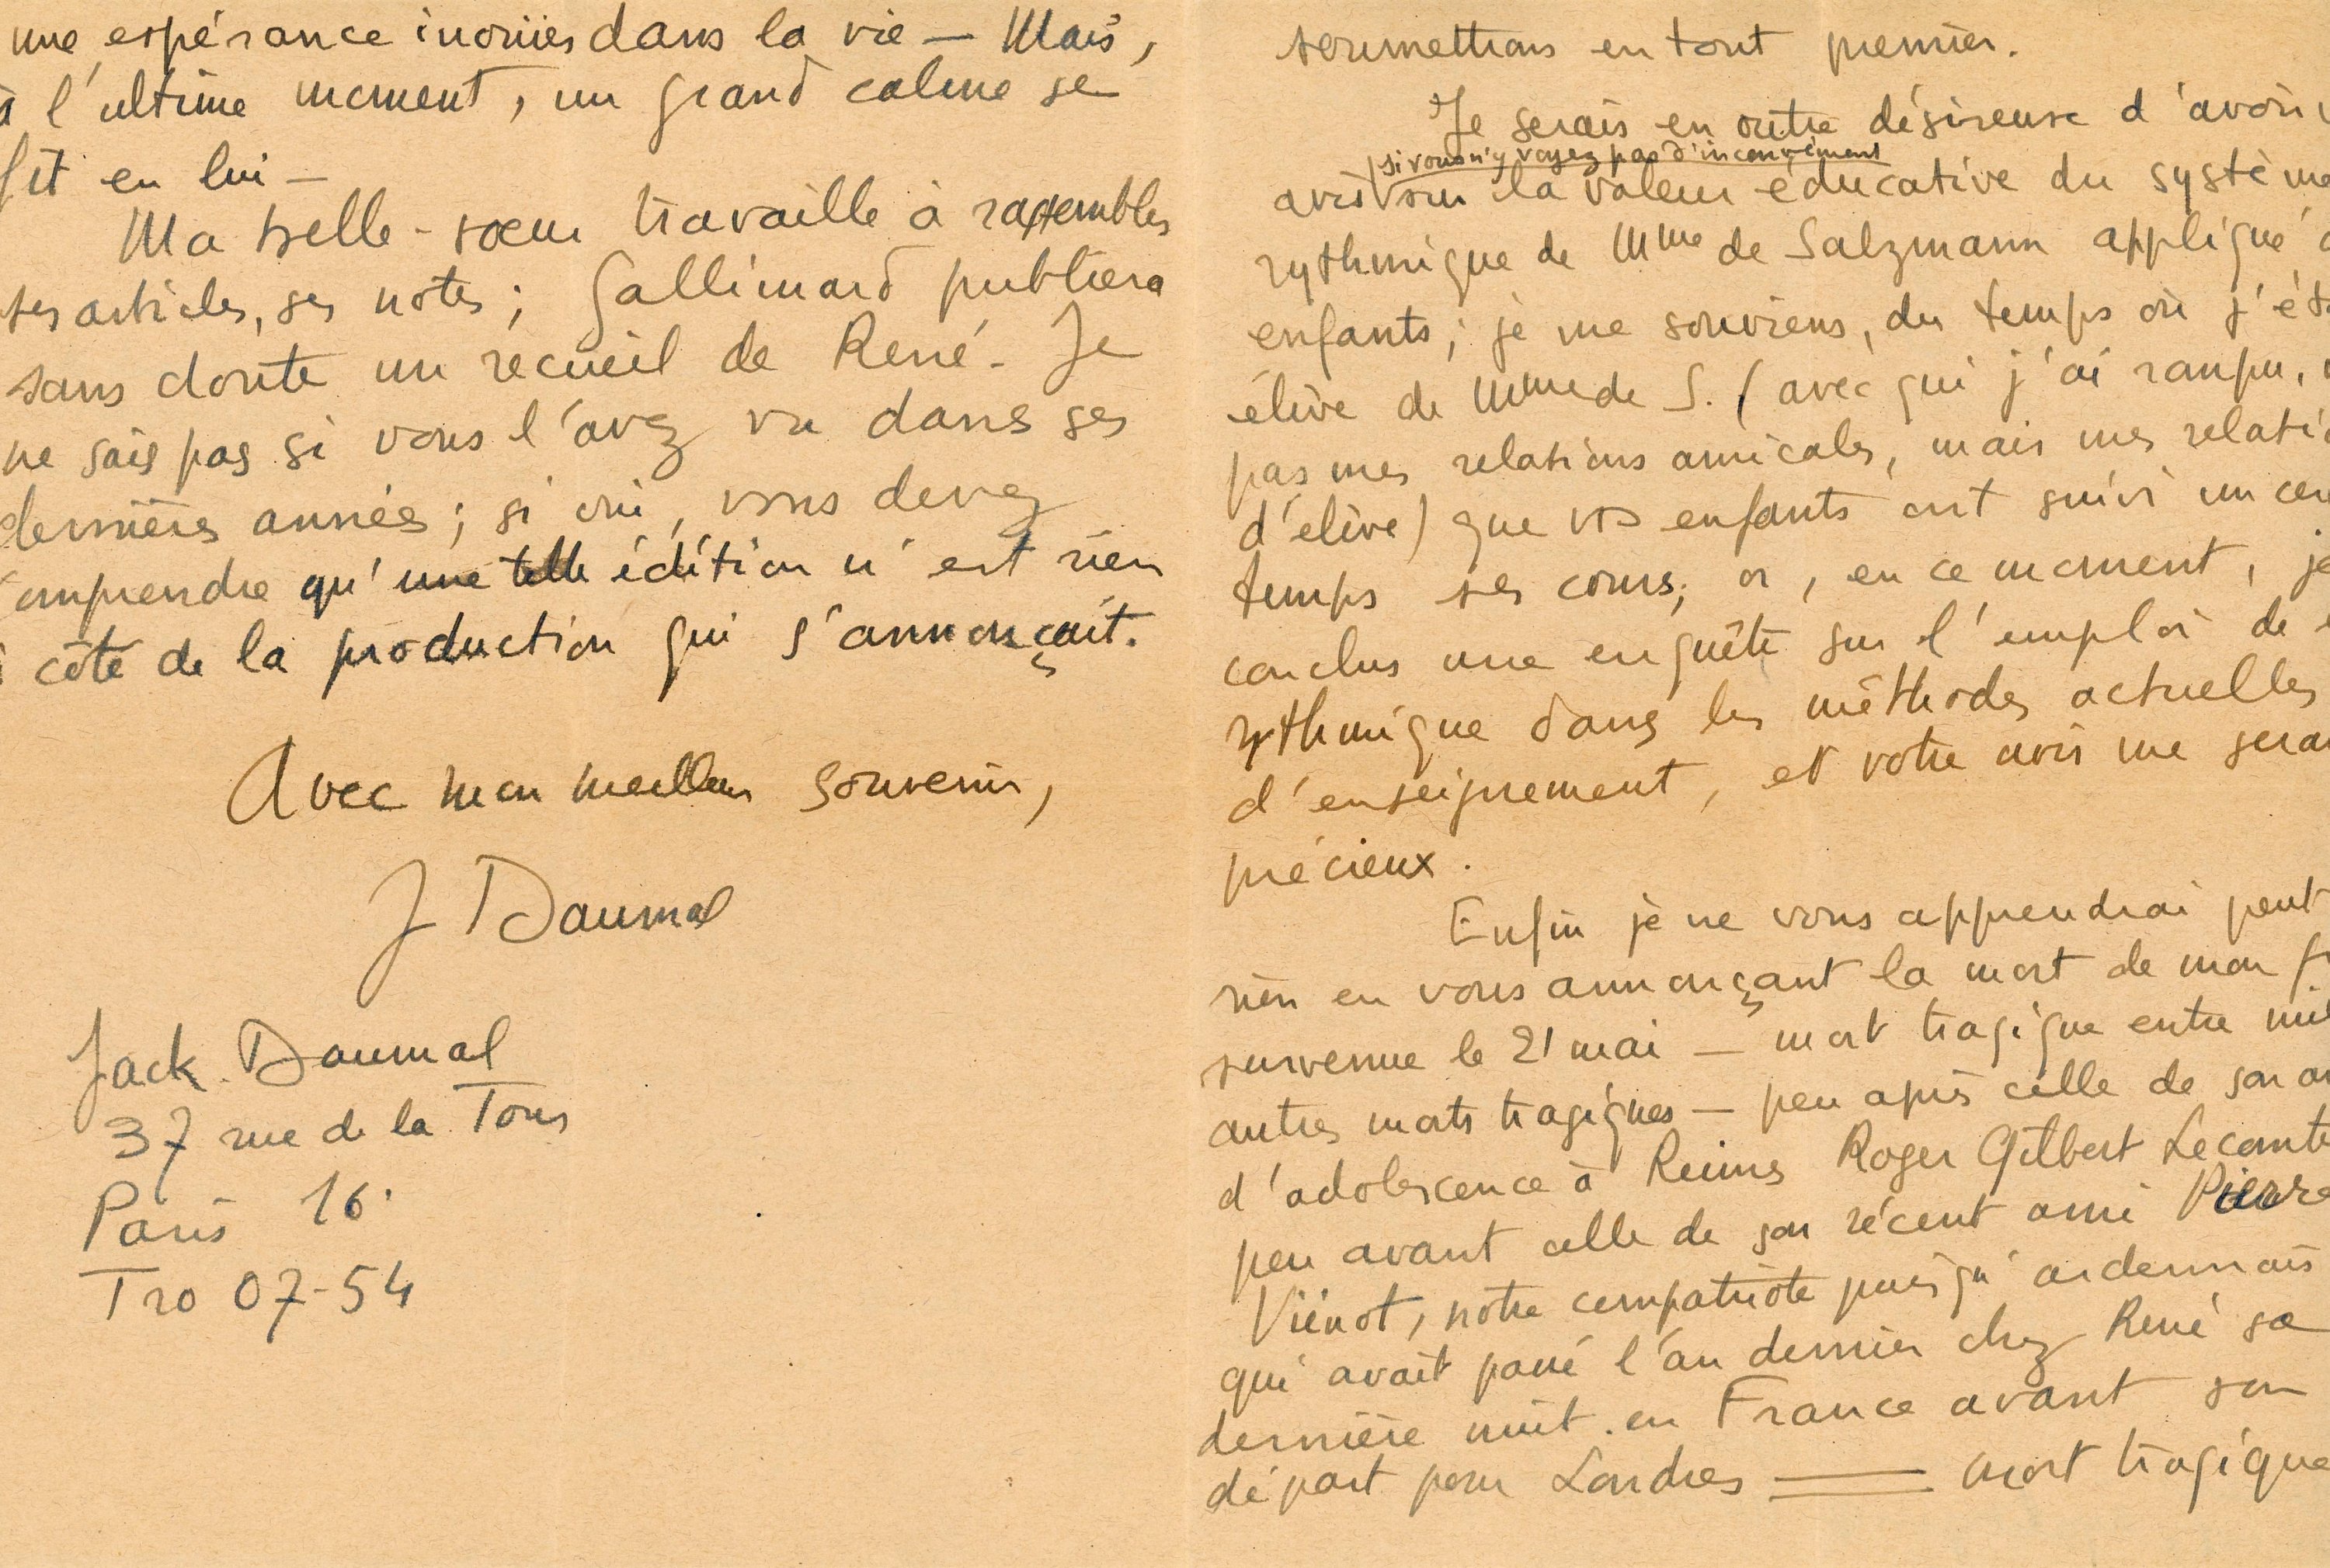 une espérance inouïes dans la vie — Mais,
à l'ultime moment, un grand calme se
fit en lui —
Ma belle-sœur travaille à rassembler
ses articles, ses notes ; Gallimard publiera
sans doute un recueil de René. Je
ne sais pas si vous l'avez vu dans ses
dernières années ; si oui, vous devez
comprendre qu'une telle édition n'est rien
à côté de la production qui s'annonçait.
Avec mon meilleur souvenir,
J Daumal
Jack Daumal
37 rue de la Tour
Paris 16.
Tro 07-54
soumettrons en tout premier.
Je serais en outre désireuse d'avoir v
si vous n'y voyez pas d'inconvénient
avis sur la valeur éducative du système
rythmique de Mme de Salzmann appliqué
enfants ; je me souviens, du temps où j'ét
élève de Mme de S. (avec qui j'ai rompu,
pas mes relations amicales, mais mes relatio
d'elève) que vos enfants ont suivi un cer
temps ses cours ; or, en ce moment, je
conclus une enquête sur l'emploi de
rythmique dans les méthodes actuelles
d'enseignement, et votre avis me serai
précieux.
Enfin je ne vous apprendrai peut
rien en vous annonçant la mort de mon fr
survenue le 21 mai — mort tragique entre mil
autres morts tragiques — peu après celle de son am
d'adolescence à Reims Roger Gilbert Lecomte
peu avant celle de son récent ami Pierre
Viénot, notre compatriote puisqu'ardennais
qui avait passé l'an dernier chez René sa
dernière nuit en France avant son
départ pour Londres — mort tragique